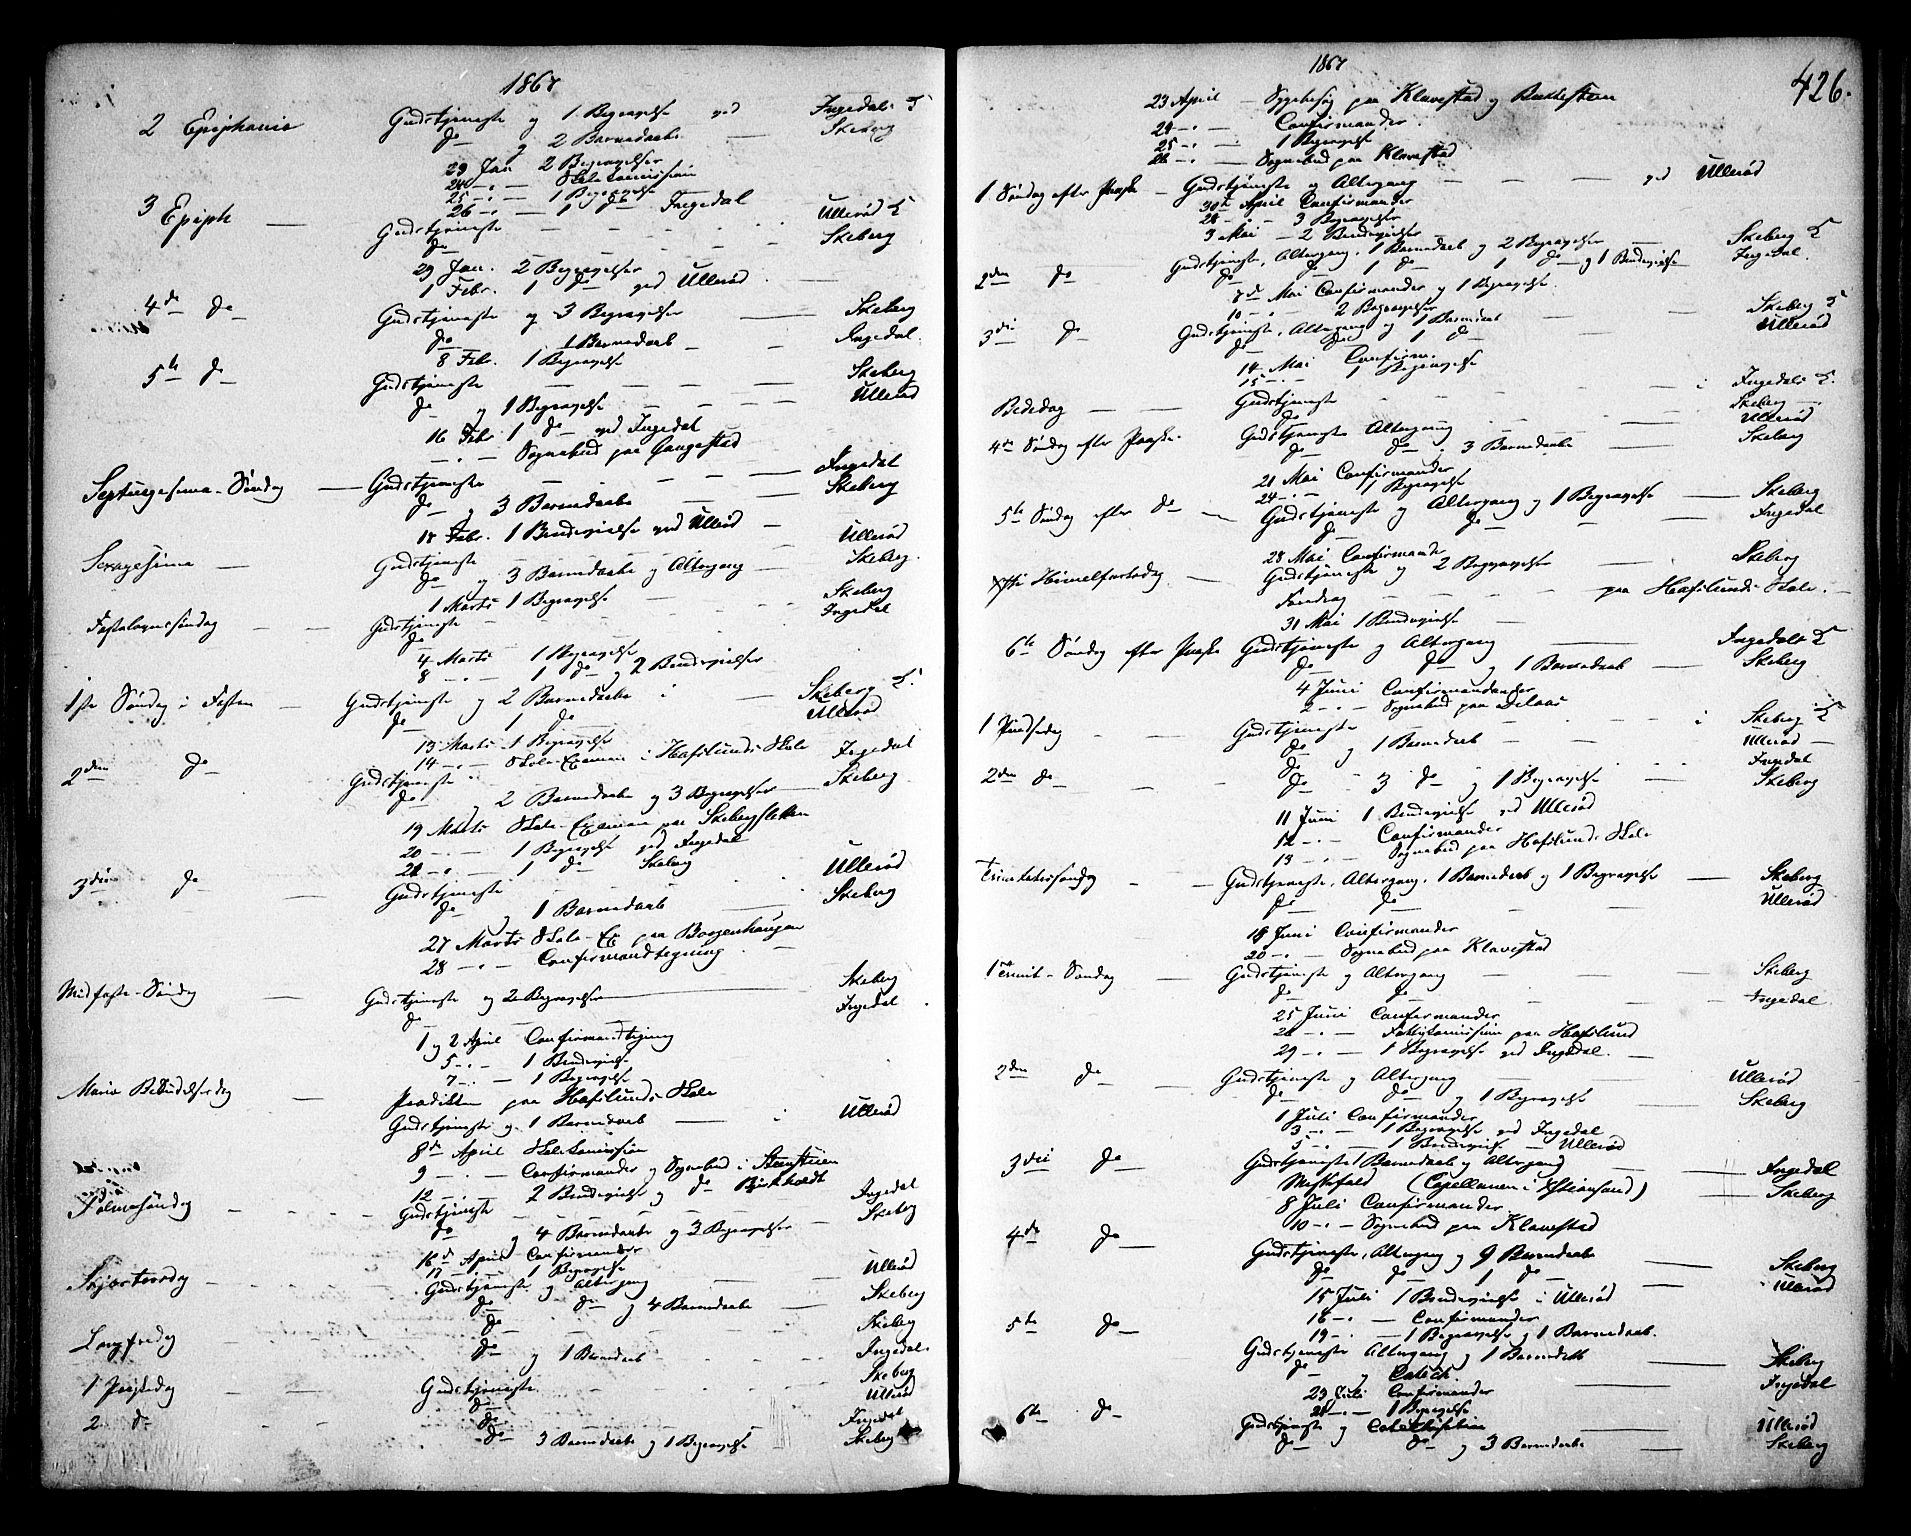 1867
2 Epiphania Gudstjeneste og 1 Begravelse ved Ingedal K
do og 2 Barnedaab Skeberg
23 Jan 2 Begravelser
24 - " - Skolekomission
25 - " - 1 Begravelse
26 - " - 1 do Ingedal
3 Epiph — Gudstjeneste Ullerød K
do Skeberg
29 Jan. 2 Begravelser
1 Febr. 1 do ved Ullerød
4de do Gudstjeneste og 3 Begravelser Skeberg
do 1 Barnedaab Ingedal.
8 Febr. 1 Begravelse
5te do Gudstjeneste Skeberg
do og 1 Begravelse Ullerød
16 Febr 1 do ved Ingedal
- " - Sognebud paa Gaugestad
Septuagesima-Søndag — Gudstjeneste Ingedal
do og 3 Barnedaab Skeberg
18 Febr. 1 Brudevielse ved Ullerød
Sexagesima — Gudstjeneste Ullerød
do og 3 Barnedaab og Altergang Skeberg.
1 Marts 1 Begravelse
Fastelavnssøndag Gudstjeneste Skeberg
do Ingedal
4 Marts 1 Begravelse
8 - " - 1 do og 2 Brudevielser
1ste Søndag i Fasten — Gudstjeneste og 2 Barnedaab i Skeberg K.
do 1 do Ullerød
13 Marts 1 Begravelse
14 - " - Skole-Examen i Hafslunds Skole
2den do Gudstjeneste Ingedal
do og 2 Barnedaab og 3 Begravelser Skeberg
19 Marts Skole-Examen paa Skebergsletten
20 - " - 1 Begravelse ved Ingedal
22 - " - 1 do Skeberg
3die do Gudstjeneste Ullerød
do og 1 Barnedaab Skeberg
27 Marts Skole-Ex paa Borgenhaugen
28 - " - Confirmandtegning
Midfaste-Søndag — Gudstjeneste og 2 Begravelser Skeberg
do Ingedal
1 og 2 April Confirmandtegning
5 - " - 1 Brudevielse
7 - " - 1 Begravelse
Maria Bebudelsesdag — Prædiken paa Hafslunds Skole
Gudstjeneste og 1 Barnedaab i Ullerød
8de April Skolekomission
9 - " - Confirmander og Sognebud i Stenstuen
12 - " - 2 Brudevielser og do
Palmesøndag Gudstjeneste Ingedal
do og 4 Barnedaab og 3 Begravelser Skeberg
16de April Confirmander
17 - " - 1 Begravelse
Skjærtorsdag Gudstjeneste og Altergang Ullerød
do do og 4 Barnedaab Skeberg
Langfredag do Skeberg
do og 1 Barnedaab Ingedal
1 Paaskedag Gudstjeneste Skeberg
do Ullerød
2. do do Ingedal
do 3 Barnedaab og 1 Begravelse Skeberg
1867
426.
23 April — Sygebesøg paa Klavestad og
24 - " - Confirmander
25 - " - 1 Begravelse
26 - " - Sognebud paa Klavestad
1 Søndag efter Paaske — Gudstjeneste og Altergang ved Ullerød
30te April Confirmander
28 - " - 3 Begravelser
3 Mai — 2 Brudevielser
Gudstjeneste, Altergang, 1 Barnedaab og 2 Begravelser Skeberg K
2den do do do 1 do 1 do og 1 Brudevielse Ingedal.
7de Mai Confirmander og 1 Begravelse.
10 - " - 2 Begravelser
3die do Gudstjeneste, Altergang og 1 Barnedaab Skeberg K
do do 1 do Ullerød
14 Mai Confirm.
15 - " - 1 Begravelse
Bededag Gudstjeneste i Ingedals K.
do Skeberg
4de Søndag efter Paaske. Gudstjeneste Altergang Ullerød
do do 3 Barnedaab Skeberg
21 Mai Confirmander
24 - " - 1 Begravelse
5te Søndag efter do — Gudstjeneste og Altergang og 1 Begravelse Skeberg
do do Ingedal
28 Mai Confirmander
Xsti Himmelfartsdag Gudstjeneste og 2 Begravelser Skeberg
Foredrag paa Hafslunds Skole.
31 Mai 1 Brudevielse
6te Søndag efter Paaske Gudstjeneste og Altergang Ingedals K
do do og 1 Barnedaab Skeberg
4 Juni Confirmander
2 - " - Sognebud paa
1 Pindsedag Gudstjeneste i Skeberg K
do og 1 Barnedaab Ullerød
do Ingedal
2den do do 3 do og 1 Begravelse Skeberg
11 Juni 1 Brudevielse ved Ullerød
12 - " - Confirmander
13 - " - Sognebud paa Hafslunds Skole
Trinitatissøndag — Gudstjeneste, Altergang, 1 Barnedaab og 1 Begravelse Skeberg
do do Ullerød
18 Juni Confirmander
20 - " - Sognebud paa Klavestad
1 Trinit-Søndag Gudstjeneste og Altergang Skeberg
do do Ingedal
25 Juni Confirmander
26 - " - Fattigkomission paa Hafslund
29 - " - 1 Begravelse ved Ingedal.
2den do Gudstjeneste og Altergang Ullerød
do do og 1 Begravelse Skeberg
1 Juli Confirmander
3 - " - 1 Begravelse ved Ingedal
5 - " - 1 Brudevielse — Ullerød
3die do Gudstjeneste 1 Barnedaab og Altergang Ingedal
Messefald (Capellanen i Xstiansand) Skeberg
8 Juli Confirmander
10 - " - Sognebud paa Klavestad
4de do Gudstjeneste, Altergang og 9 Barnedaab Skeberg
do do 1 do Ullerød
15 Juli 1 Brudevielse i Ullerød
16 - " - Confirmander
19 - " - 1 Begravelse og 1 Barnedaab.
5te do Gudstjeneste Altergang og 1 Barnedaab Skeberg
do og Catech. Ingedal
23 Juli Confirmander
24 - " - 1 Begravelse
6te do Gudstjeneste og Catekisation Ullerød
do do og 3 Barnedaab Skeberg